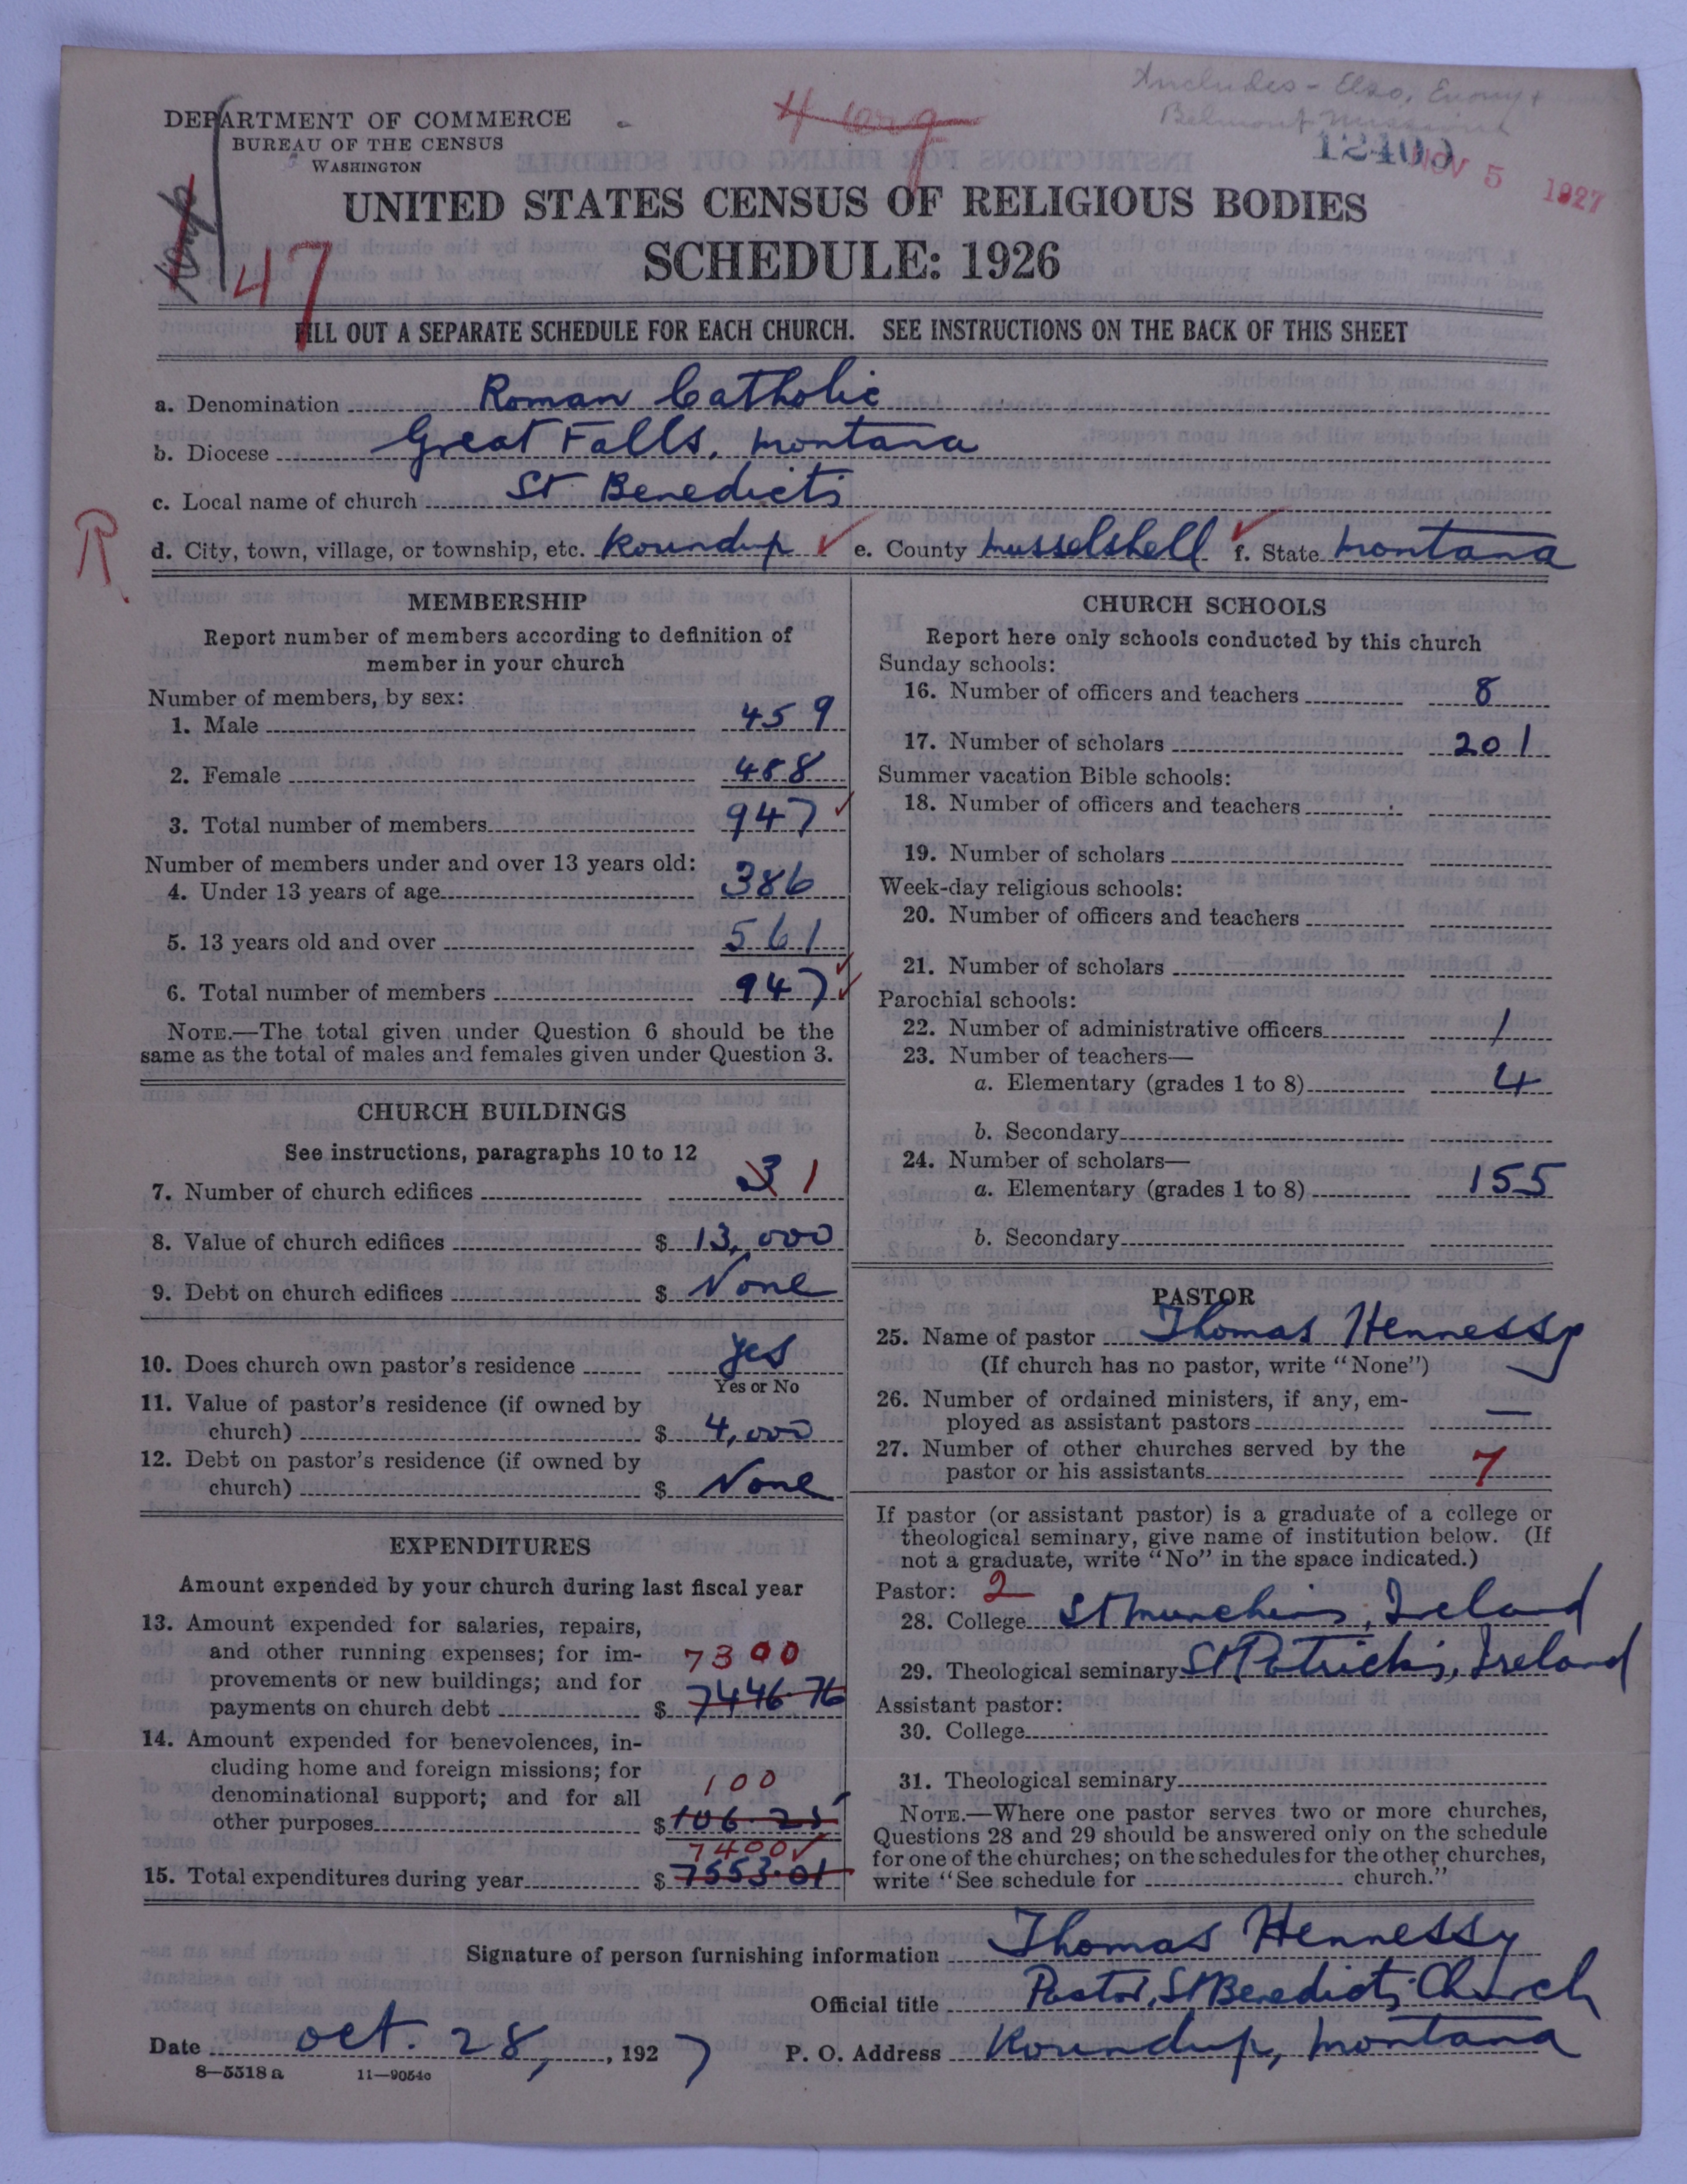 Includes - Elso, Emory +
Belmont Missions
DEPARTMENT OF COMMERCE
BUREAU OF THE CENSUS
WASHINGTON
12409
NOV 5 1927
UNITED STATES CENSUS OF RELIGIOUS BODIES
SCHEDULE: 1926
47
FILL OUT A SEPARATE SCHEDULE FOR EACH CHURCH. SEE INSTRUCTIONS ON THE BACK OF THIS SHEET
a. Denomination Roman Catholic
b. Diocese Great Falls, Montana
c. Local name of church St Benedicts
R.
d. City, town, village, or township, etc. Roundup ✓ e. County Musselshell ✓ f. State Montana
MEMBERSHIP
Report number of members according to definition of
member in your church
Number of members, by sex:
1. Male 459
2. Female 488
3. Total number of members 947 ✓
Number of members under and over 13 years old:
4. Under 13 years of age 386
5. 13 years old and over 561
6. Total number of members 947 ✓
NOTE.—The total given under Question 6 should be the
same as the total of males and females given under Question 3.
CHURCH BUILDINGS
See instructions, paragraphs 10 to 12
7. Number of church edifices 3 1
8. Value of church edifices $ 13,000
9. Debt on church edifices $ None
10. Does church own pastor's residence Yes
Yes or No
11. Value of pastor's residence (if owned by
church) $ 4,000
12. Debt on pastor's residence (if owned by
church) $ None
EXPENDITURES
Amount expended by your church during last fiscal year
13. Amount expended for salaries, repairs,
and other running expenses; for im-
provements or new buildings; and for 7300
payments on church debt $ 7446.76
14. Amount expended for benevolences, in-
cluding home and foreign missions; for
denominational support; and for all 100
other purposes $ 106.25
7400 ✓
15. Total expenditures during year $ 7553.01
CHURCH SCHOOLS
Report here only schools conducted by this church
Sunday schools:
16. Number of officers and teachers 8
17. Number of scholars 201
Summer vacation Bible schools:
18. Number of officers and teachers
19. Number of scholars
Week-day religious schools:
20. Number of officers and teachers
21. Number of scholars
Parochial schools:
22. Number of administrative officers 1
23. Number of teachers—
a. Elementary (grades 1 to 8) 4
b. Secondary
24. Number of scholars—
a. Elementary (grades 1 to 8) 155
b. Secondary
PASTOR
25. Name of pastor Thomas Hennessy
(If church has no pastor, write "None")
26. Number of ordained ministers, if any, em-
ployed as assistant pastors —
27. Number of other churches served by the
pastor or his assistants 7
If pastor (or assistant pastor) is a graduate of a college or
theological seminary, give name of institution below. (If
not a graduate, write "No" in the space indicated.)
Pastor: 2
28. College St Munchins, Ireland
29. Theological seminary St Patricks, Ireland
Assistant pastor:
30. College
31. Theological seminary
NOTE.—Where one pastor serves two or more churches,
Questions 28 and 29 should be answered only on the schedule
for one of the churches; on the schedules for the other churches,
write "See schedule for church."
Signature of person furnishing information Thomas Hennessy
Official title Pastor, St Benedicts Church
Date Oct. 28, 1927 P. O. Address Roundup, Montana
8—5518 a 11—9054c